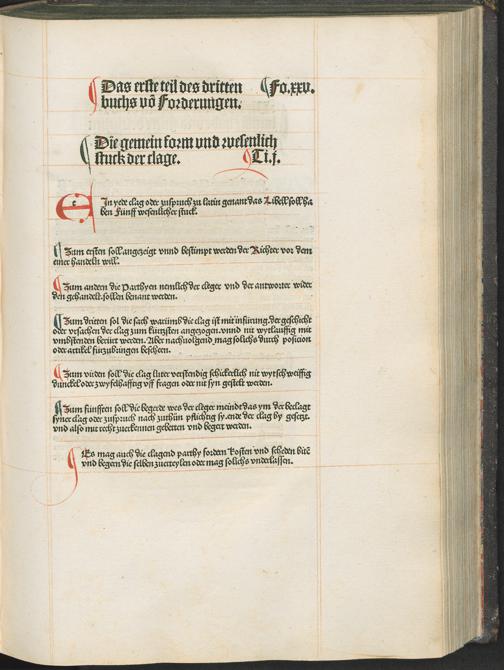 Das erste teil des dritten Fo.xxv.
buchs võ Forderungen.
Die gemein form vnd wesenlich
stuck der clage. Ti.j.
E In yede clag oder zuspruch zu latin genant das Libell soll ha
ben Funff wesenlicher stuck.
Zum ersten soll angezeigt vnnd bestimpt werden der Richter vor dem
einer handeln will.
Zum andern die Parthyen nemlich der cleger vnd der antworter wider
den gehandelt sollen benant werden.
Zum dritten sol die sach warumb die clag ist mit infürung der geschicht
oder vrsachen der clag zum kürtzsten angezogen. vnnd nit wytlauffig mit
vmbstenden berürt werden. Aber nachuolgend mag solichs durch posicion
oder artikel fürzubringen beschehen.
Zum vierden soll die clag luter verstendig schickerlich nit wytschweiffig
dunckel oder zwyfelhafftig vff fragen oder nit syn gestelt werden.
Zum fünfften soll die begerde wes der cleger meindt das ym der beclagt
syner clag oder zuspruch nach zuthun pflichtig sy. ende der clag by gesetzt.
vnd also mit recht zuerkennen gebetten vnd begert werden.
Es mag auch die clagend parthy fordern kosten vnd scheden bitē
vnd begern die selben zuerteylen oder mag solichs vnderlassen.